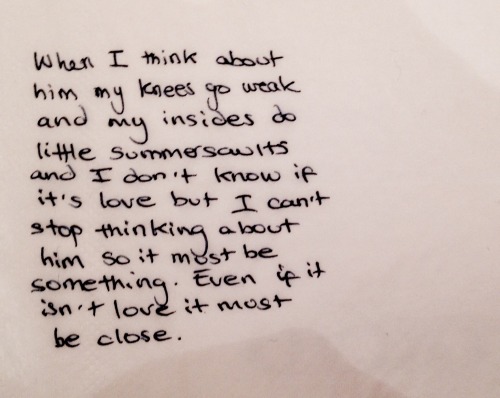 When I think about
him my knees go weak
and my insides do
little summersaults
and I don't know if
it's love but I can't
stop thinking about
him so it must be
something. Even if it
isn't love it must
be close.